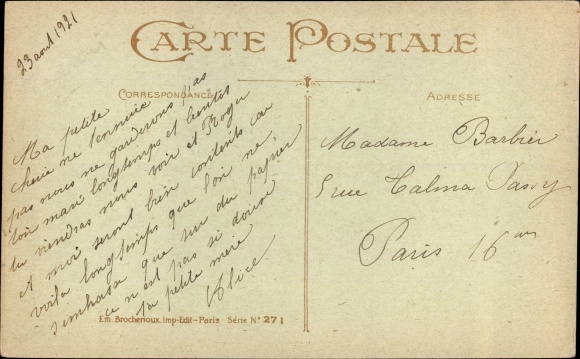 23 aout 1921
CARTE POSTALE
CORRESPONDANCE
ADRESSE
Ma petite
cherie ne t'ennuie
pas nous ne garderons pas
ton mari longtemps et bientis
tu viendras nous voir et Roger
et moi seront bien contents car
voila longtemps que l'on ne
s'embrasse que sur du papier
ce n'est pas si doux
ta petite mère
Alice
Madame Barbier
5 rue Talma Passy
Paris 16
Em. Brocherioux, Imp-Edit-Paris Série N° 271